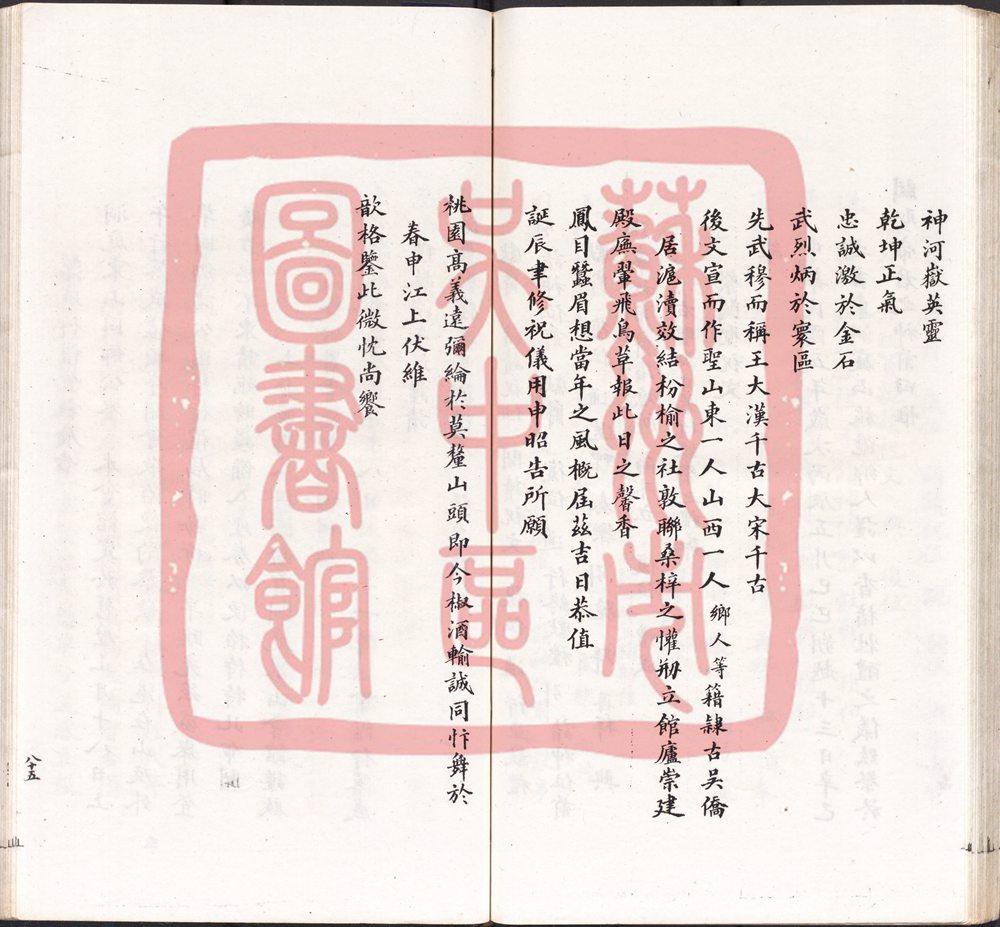 神河嶽英靈
乾坤正氣
忠誠激於金石
武烈炳於寰區
先武穆而稱王大漢千古大宋千古
後文宣而作聖山東一人山西一人鄉人等籍隸古吳僑
居滬瀆效結枌榆之社敦聯桑梓之懽剏立館廬崇建
殿廡翬飛鳥革報此日之馨香
鳳目蠶眉想當年之風概屆茲吉日恭值
誕辰聿修祝儀用申昭告所願
桃園高義遠彌綸於莫釐山頭即今椒酒輸誠同忭舞於
春申江上伏維
歆格鑒此微忱尚饗
八十五
蘇州市
吳中區
圖書館